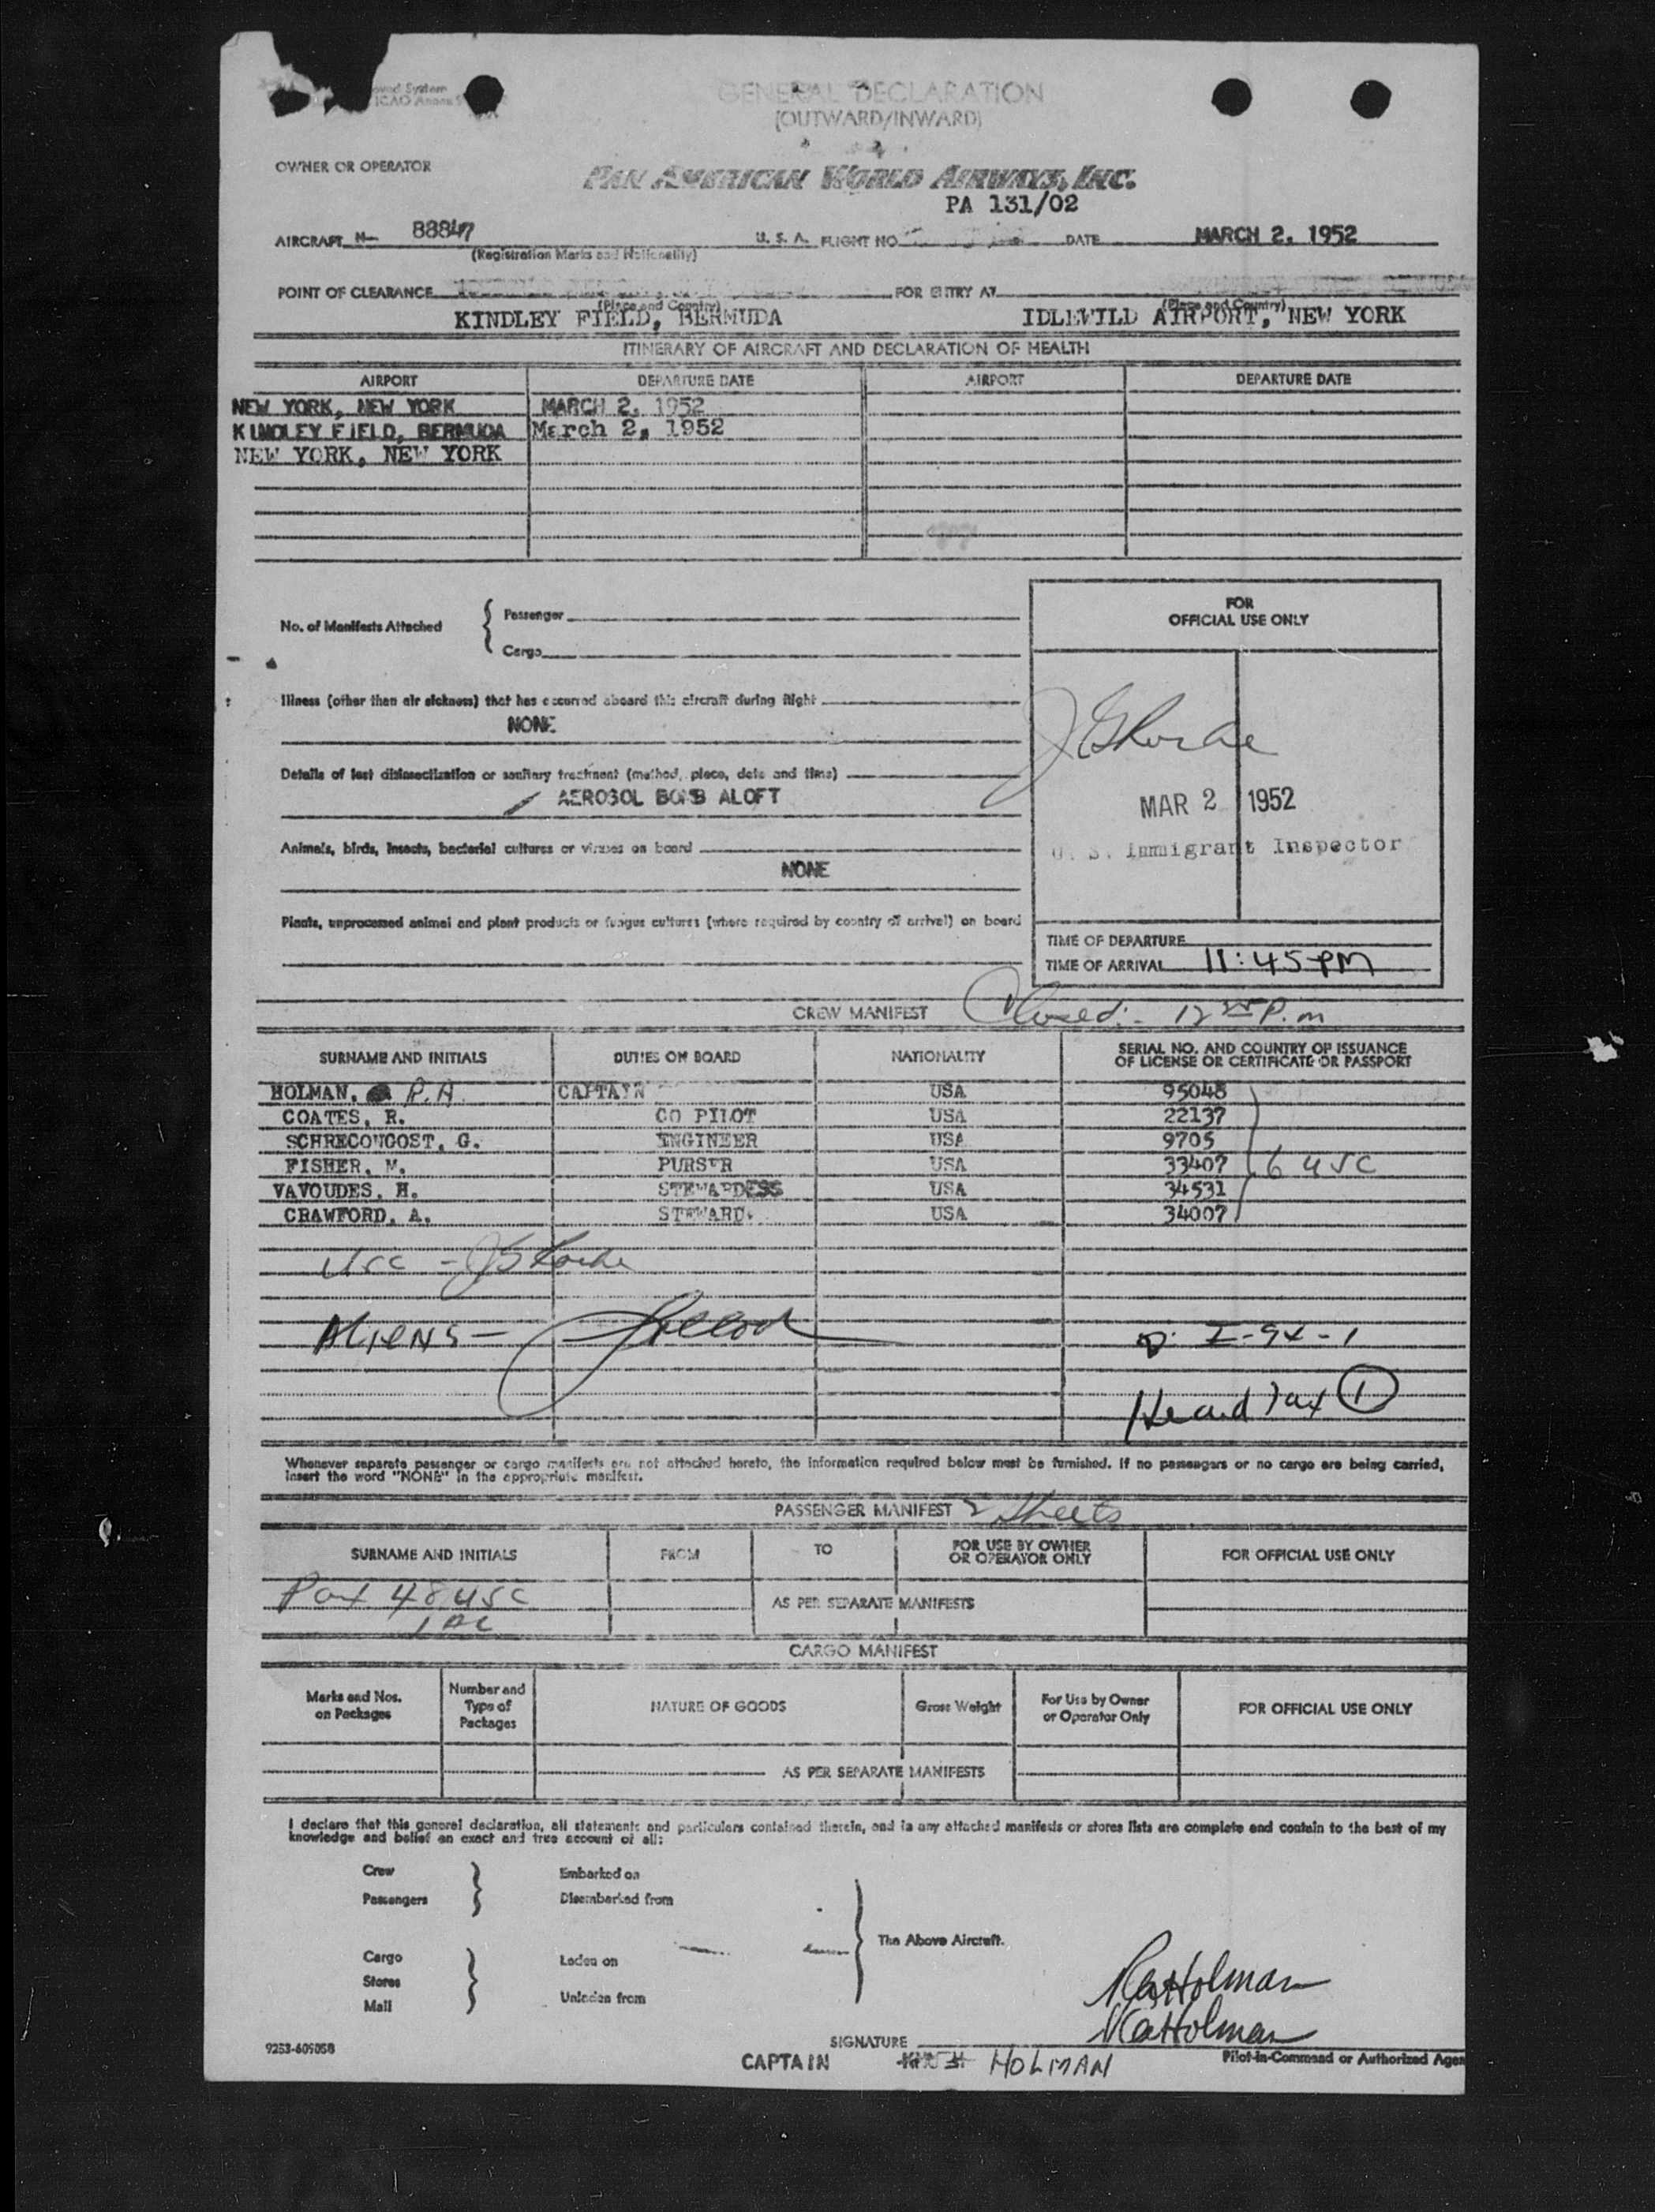 oved System
ICAO Annex 9
GENERAL DECLARATION
(OUTWARD/INWARD)
OWNER OR OPERATOR
PAN AMERICAN WORLD AIRWAYS, INC.
PA 131/02
AIRCRAFT N- 88847 U. S. A. FLIGHT NO DATE MARCH 2. 1952
(Registration Marks and Nationality)
POINT OF CLEARANCE FOR ENTRY AT
(Place and Country) (Place and Country)
KINDLEY FIELD, BERMUDA IDLEWILD AIRPORT, NEW YORK
ITINERARY OF AIRCRAFT AND DECLARATION OF HEALTH
AIRPORT DEPARTURE DATE AIRPORT DEPARTURE DATE
NEW YORK, NEW YORK MARCH 2, 1952
KINDLEY FIELD, BERMUDA March 2, 1952
NEW YORK, NEW YORK
No. of Manifests Attached { Passenger
Cargo
FOR
OFFICIAL USE ONLY
Illness (other than air sickness) that has occurred aboard this aircraft during flight
NONE
Details of last disinsectization or sanitary treatment (method, place, date and time)
AEROSOL BOMB ALOFT
MAR 2 1952
Animals, birds, insects, bacterial cultures or viruses on board
U. S. Immigrant Inspector
NONE
Plants, unprocessed animal and plant products or fungus cultures (where required by country of arrival) on board
TIME OF DEPARTURE
TIME OF ARRIVAL 11:45 PM
CREW MANIFEST Closed:- 12 P.m
SURNAME AND INITIALS DUTIES ON BOARD NATIONALITY SERIAL NO. AND COUNTRY OF ISSUANCE
OF LICENSE OR CERTIFICATE OR PASSPORT
HOLMAN, R.A. CAPTAIN USA 95048
COATES, R. CO PILOT USA 22137
SCHRECONGOST, G. ENGINEER USA 9705
FISHER, M. PURSER USA 33407 6 USC
VAVOUDES, H. STEWARDESS USA 34531
CRAWFORD, A. STEWARD. USA 34007
USC -
ALIENS - I-94-1
Head Tax 1
Whenever separate passenger or cargo manifests are not attached hereto, the information required below must be furnished. If no passengers or no cargo are being carried,
insert the word "NONE" in the appropriate manifest.
PASSENGER MANIFEST 2 Sheets
SURNAME AND INITIALS FROM TO FOR USE BY OWNER
OR OPERATOR ONLY FOR OFFICIAL USE ONLY
Pax 48 USC
AS PER SEPARATE MANIFESTS
CARGO MANIFEST
Marks and Nos.
on Packages Number and
Type of
Packages NATURE OF GOODS Gross Weight For Use by Owner
or Operator Only FOR OFFICIAL USE ONLY
AS PER SEPARATE MANIFESTS
I declare that this general declaration, all statements and particulars contained therein, and in any attached manifests or stores lists are complete and contain to the best of my
knowledge and belief an exact and true account of all:
Crew Embarked on
Passengers Disembarked from
The Above Aircraft.
Cargo Laden on
Stores
Mail Unladen from
RA Holman
RA Holman
9253-609058 SIGNATURE
Pilot-in-Command or Authorized Agen
CAPTAIN HOLMAN